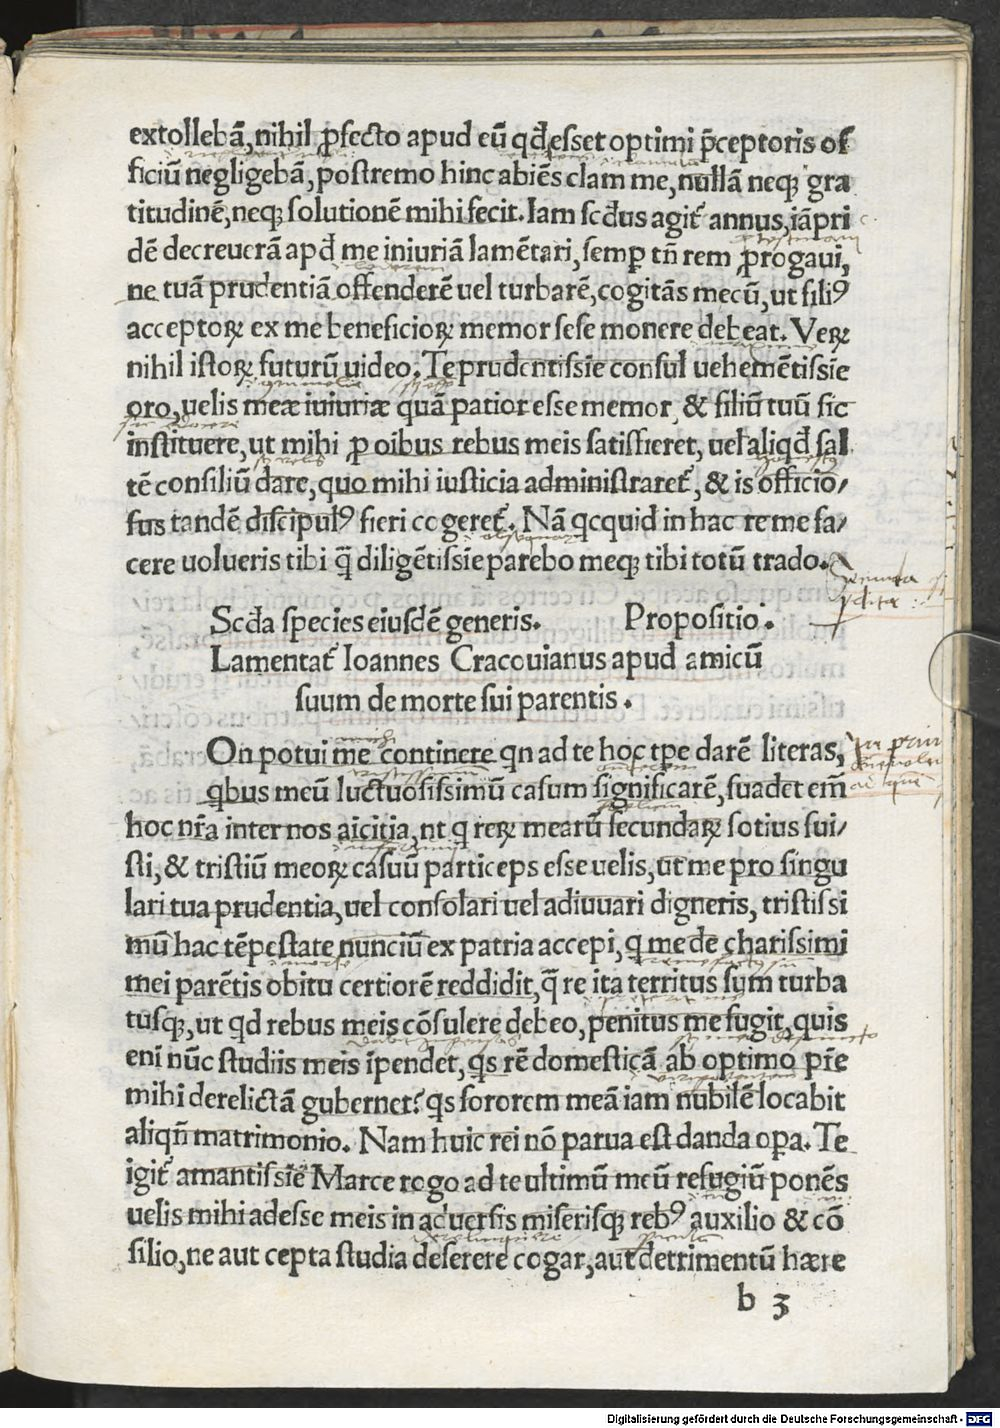 extollebā, nihil ꝓfecto apud eū qđ esset optimi p̄ceptoris of
ficiū negligebā, postremo hinc abiēs clam me, nullā neqꝫ gra
titudinē, neqꝫ solutionē mihi fecit. Iam scđus agit᷑ annus, iā pri
dē decreuerā apđ me iniuriā lamētari, semꝑ tñ rem ꝓrogaui,
ne tuā prudentiā offenderē uel turbarē, cogitās mecū, ut filiꝰ
acceptoꝝ ex me beneficioꝝ memor sese monere debeat. Veꝝ
nihil istoꝝ futurū uideo. Te prudentissīe consul uehemētissīe
oro, uelis meæ iuiuriæ quā patior esse memor & filiū tuū sic
instituere, ut mihi ꝑ oibus rebus meis satisfieret, uel aliqđ sal
tē consiliū dare, quo mihi iusticia administraret᷑, & is officio/
sus tandē discipulꝰ fieri cogeret᷑. Nā qcquid in hac re me fa/
cere uolueris tibi q̄ diligētissīe parebo meqꝫ tibi totū trado.
Scđa species eiusdē generis. Propositio.
Lamentat᷑ Ioannes Cracouianus apud amicū
suum de morte sui parentis.
On potui me continere qn ad te hoc tꝑe darē literas,
qbus meū luctuosissimū casum significarē, suadet em̄
hoc nr̄a inter nos aicitia, nt q reꝝ mearū secundaꝝ sotius fui/
sti, & tristiū meoꝝ casuū particeps esse uelis, ut me pro singu
lari tua prudentia, uel consolari uel adiuuari digneris, tristissi
mū hac tēpestate nunciū ex patria accepi, q me de charissimi
mei parētis obitu certiorē reddidit, q̄ re ita territus sum turba
tusqꝫ, ut qđ rebus meis cōsulere debeo, penitus me fugit, quis
eni nūc studiis meis īpendet, qs rē domesticā ab optimo pr̄e
mihi derelictā gubernet? qs sororem meā iam nubilē locabit
aliqñ matrimonio. Nam huic rei nō parua est danda oꝑa. Te
igit᷑ amantissīe Marce rogo ad te ultimū meū refugiū ponēs
uelis mihi adesse meis in aduersis miserisqꝫ rebꝰ auxilio & cō
silio, ne aut cepta studia deserere cogar, aut detrimentū hære
b 3
Digitalisierung gefördert durch die Deutsche Forschungsgemeinschaft - DFG